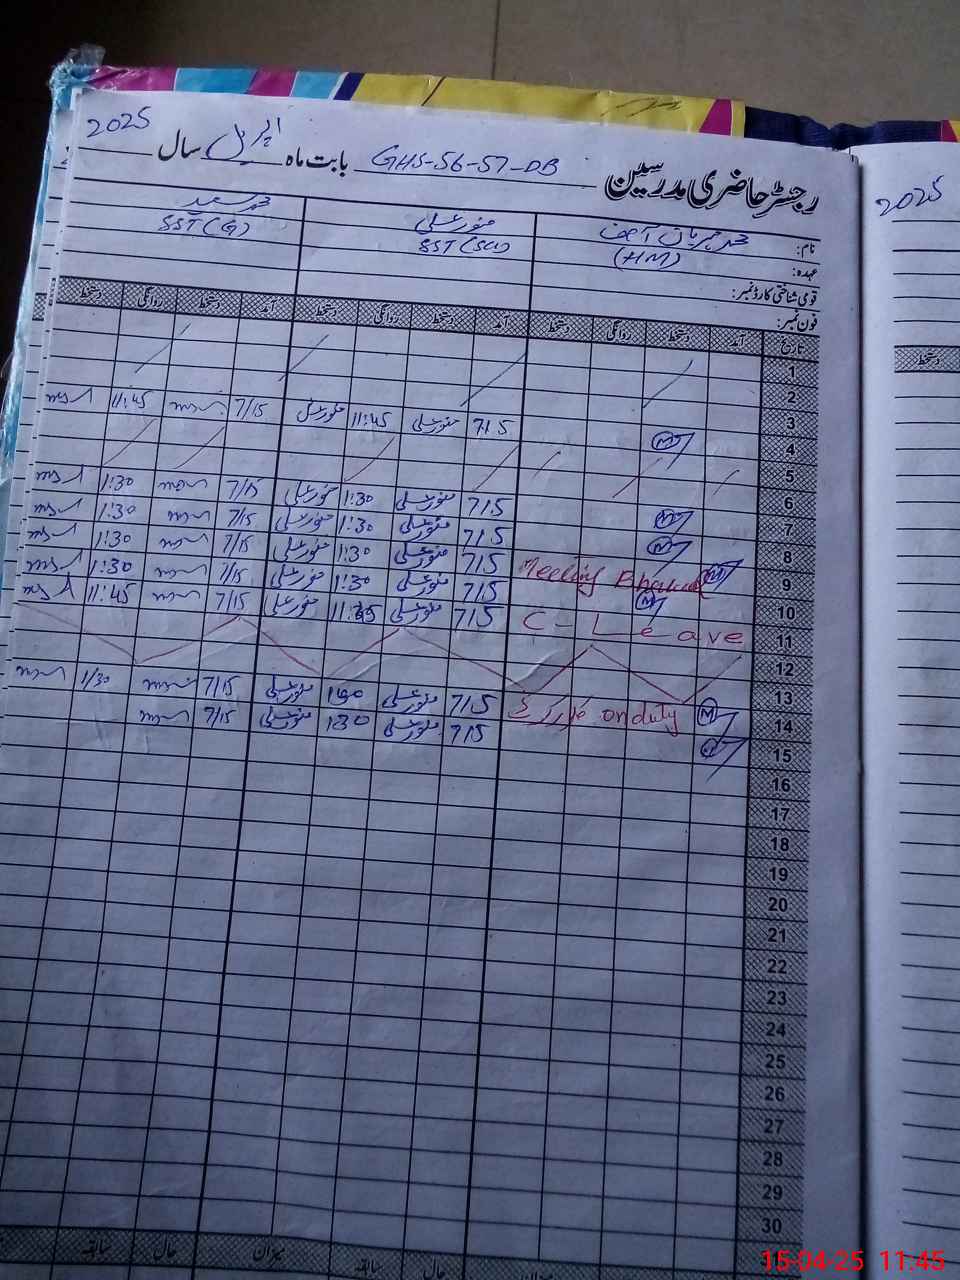 رجسٹر حاضری مدرسین GHS-56-57-DB بابت ماہ اپریل سال 2025
2025
نام: محمد مہربان آصف منور علی محمد سعید
عہدہ: (HM) SST (SCI) SST (G)
قومی شناختی کارڈ نمبر:
فون نمبر:
تاریخ آمد دستخط روانگی دستخط آمد دستخط روانگی دستخط آمد دستخط روانگی دستخط
دستخط
1
2
3
4 M 715 منور علی 11:45 منور علی 7/15 11:45
5
6
7 M 715 منور علی 1:30 منور علی 7/15 1:30
8 M 715 منور علی 1:30 منور علی 7/15 1:30
9 M Meeting 715 منور علی 1:30 منور علی 7/15 1:30
10 M 715 منور علی 1:30 منور علی 7/15 1:30
11 C-Leave 715 منور علی 11:45 منور علی 7/15 11:45
12
13
14 M on duty 715 منور علی 130 منور علی 7/15 1/30
15 715 منور علی 130 منور علی 7/15
16
17
18
19
20
21
22
23
24
25
26
27
28
29
30
میزان حال سابقہ میزان حال سابقہ
15-04-25 11:45